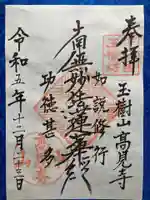 奉拝
玉樹山高見寺
如説修行
南無妙法蓮華経
功徳甚多
令和五年十二月二十三日